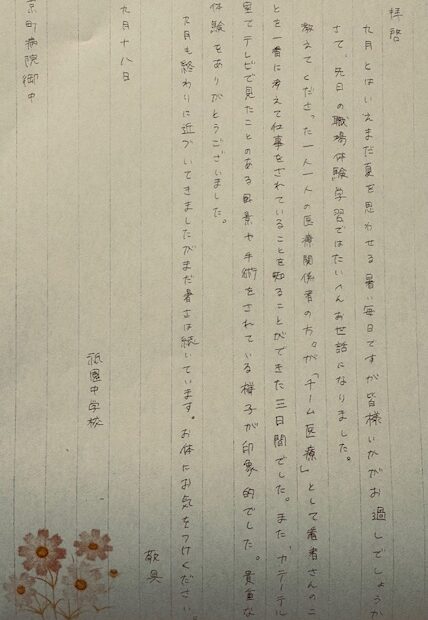 拝啓
九月とはいえまだ夏を思わせる暑い毎日ですが皆様いかがお過しでしょうか
さて、先日の職場体験学習ではたいへんお世話になりました。
教えてくださった一人一人の医療関係者の方。が「チーム医療」として患者さんのこ
とを一番に考えて仕事をされていることを知ることができた三日間でした。また、カテーテル
室でテレビで見たことのある風景や手術をされている様子が印象的でした。貴重な
体験をありがとうございました。
九月も終わりに近づいてきましたがまだ暑さは続いています。お体にお気をつけください。
敬具
九月十八日
祇園中学校
京町病院御中